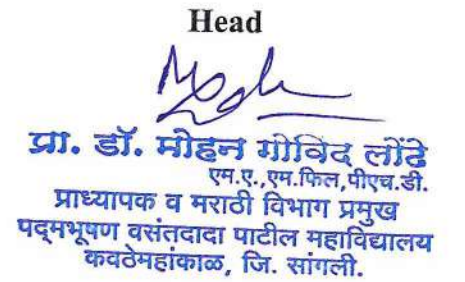 Head
प्रा. डॉ. मोहन गोविंद लोंढे
एम.ए.,एम.फिल,पीएच.डी.
प्राध्यापक व मराठी विभाग प्रमुख
पद्मभूषण वसंतदादा पाटील महाविद्यालय
कवठेमहांकाळ, जि. सांगली.